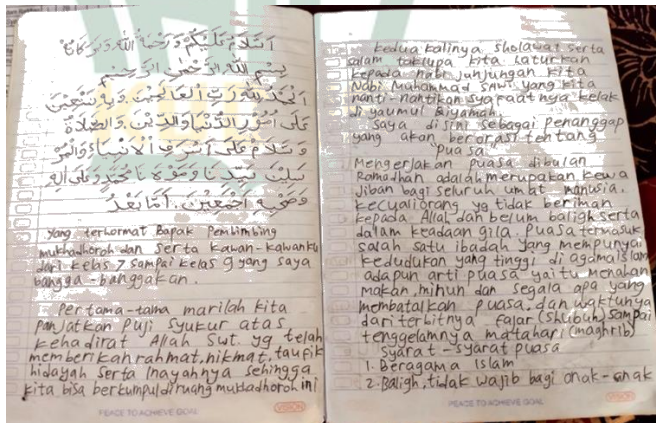 اَلسَّلَامُ عَلَيْكُمْ وَرَحْمَةُ اللهِ وَبَرَكَاتُهُ
بِسْمِ اللهِ الرَّحْمٰنِ الرَّحِيْمِ
اَلْحَمْدُ لِلهِ رَبِّ الْعَالَمِيْنَ وَبِهِ نَسْتَعِيْنُ
عَلَى اُمُوْرِ الدُّنْيَا وَالدِّيْنِ وَالصَّلَاةُ
وَسَلَامُ عَلَى اَشْرَفِ الْاَنْبِيَاءِ وَالْمُرْ
سَلِيْنَ سَيِّدِنَا وَمَوْلَانَا مُحَمَّدٍ وَعَلَى اَلِهِ
وَصَحْبِهِ اَجْمَعِيْنَ. اَمَّا بَعْدُ
Yang terhormat Bapak Pembimbing
mukhadhoroh dan serta kawan-kawanku
dari kelas 7 sampai kelas 9 yang saya
bangga-banggakan.
Pertama-tama marilah kita
panjatkan puji syukur atas
kehadirat Allah Swt. yg telah
memberikan rahmat, nikmat, taufik
hidayah serta Inayahnya sehingga
kita bisa berkumpul diruang mukhadhoroh ini
PEACE TO ACHIEVE GOAL
VISION
kedua kalinya sholawat serta
salam taklupa kita haturkan
kepada nabi junjungan kita
Nabi Muhammad SAW yang kita
nanti-nantikan syafaatnya kelak
di yaumul Qiyamah.
saya disini sebagai penanggap
yang akan berorasi tentang
Puasa
Mengerjakan puasa dibulan
Romadhan adalah merupakan kewa
Jiban bagi seluruh umat manusia.
kecualiorang yg tidak beriman
kepada Allah dan belum baligh serta
dalam keadaan gila. Puasa termasuk
salah satu ibadah yang mempunyai
kedudukan yang tinggi di agamaislam
adapun arti puasa yaitu menahan
makan, minun dan segala apa yang
membatalkan puasa. dan waktunya
dari terbitnya fajar (shubuh) sampai
tenggelamnya matahari (maghrib)
syarat-syarat puasa
1. Beragama Islam
2. Baligh, tidak wajib bagi anak-anak
PEACE TO ACHIEVE GOAL
VISION